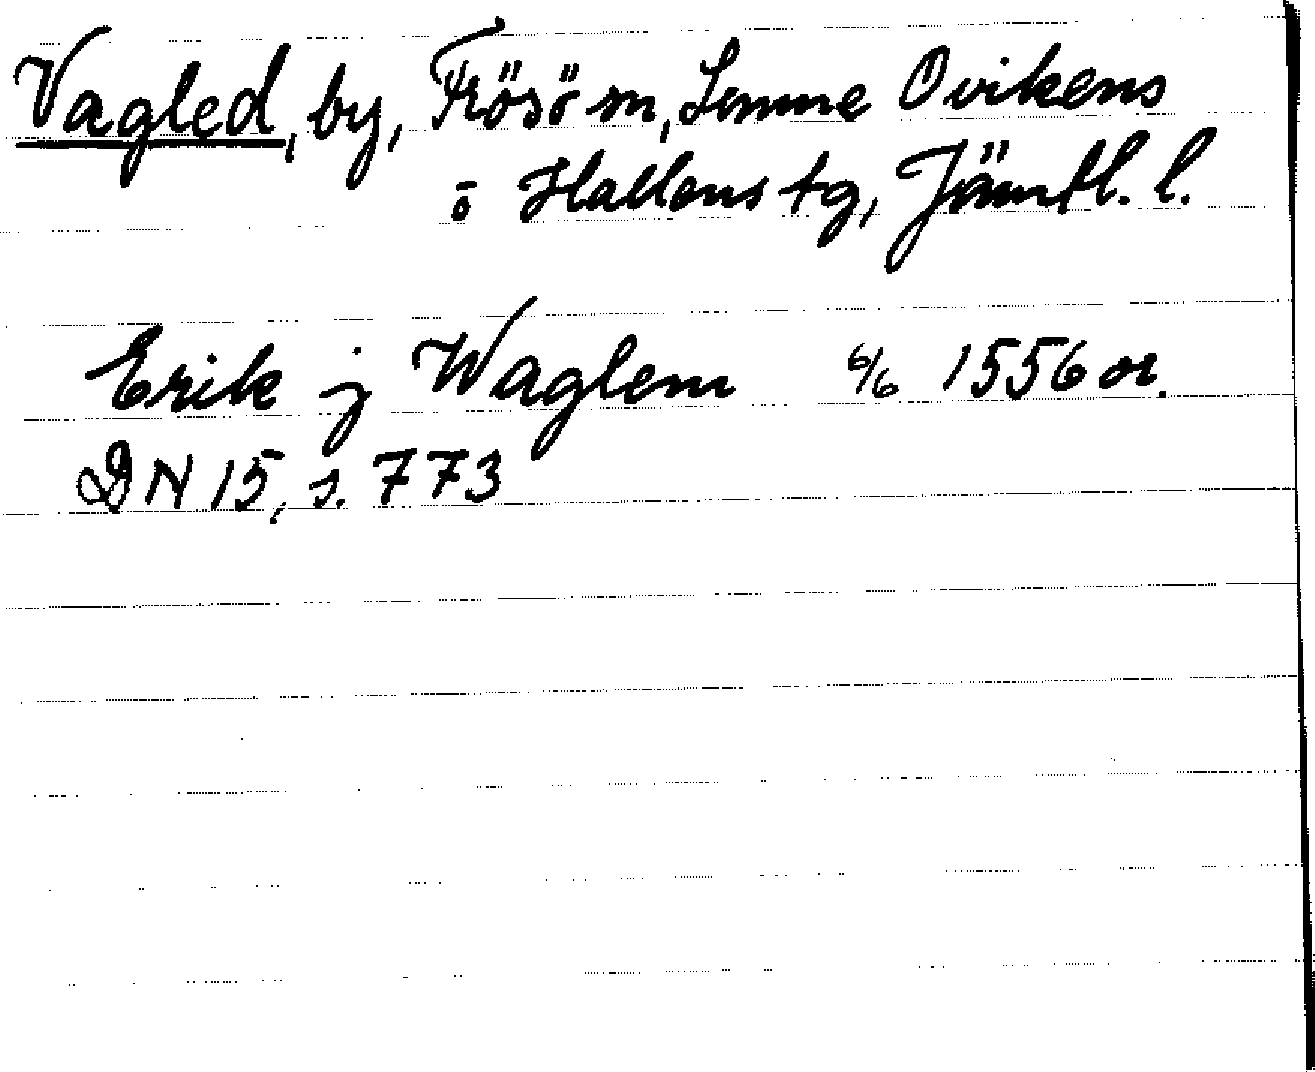 Vagled, by, Frösö sn, Sunne Ovikens
o Hallens tg, Jämtl. l.
Erik j Waglem 6/6 1556 or.
DN 15, s. 773